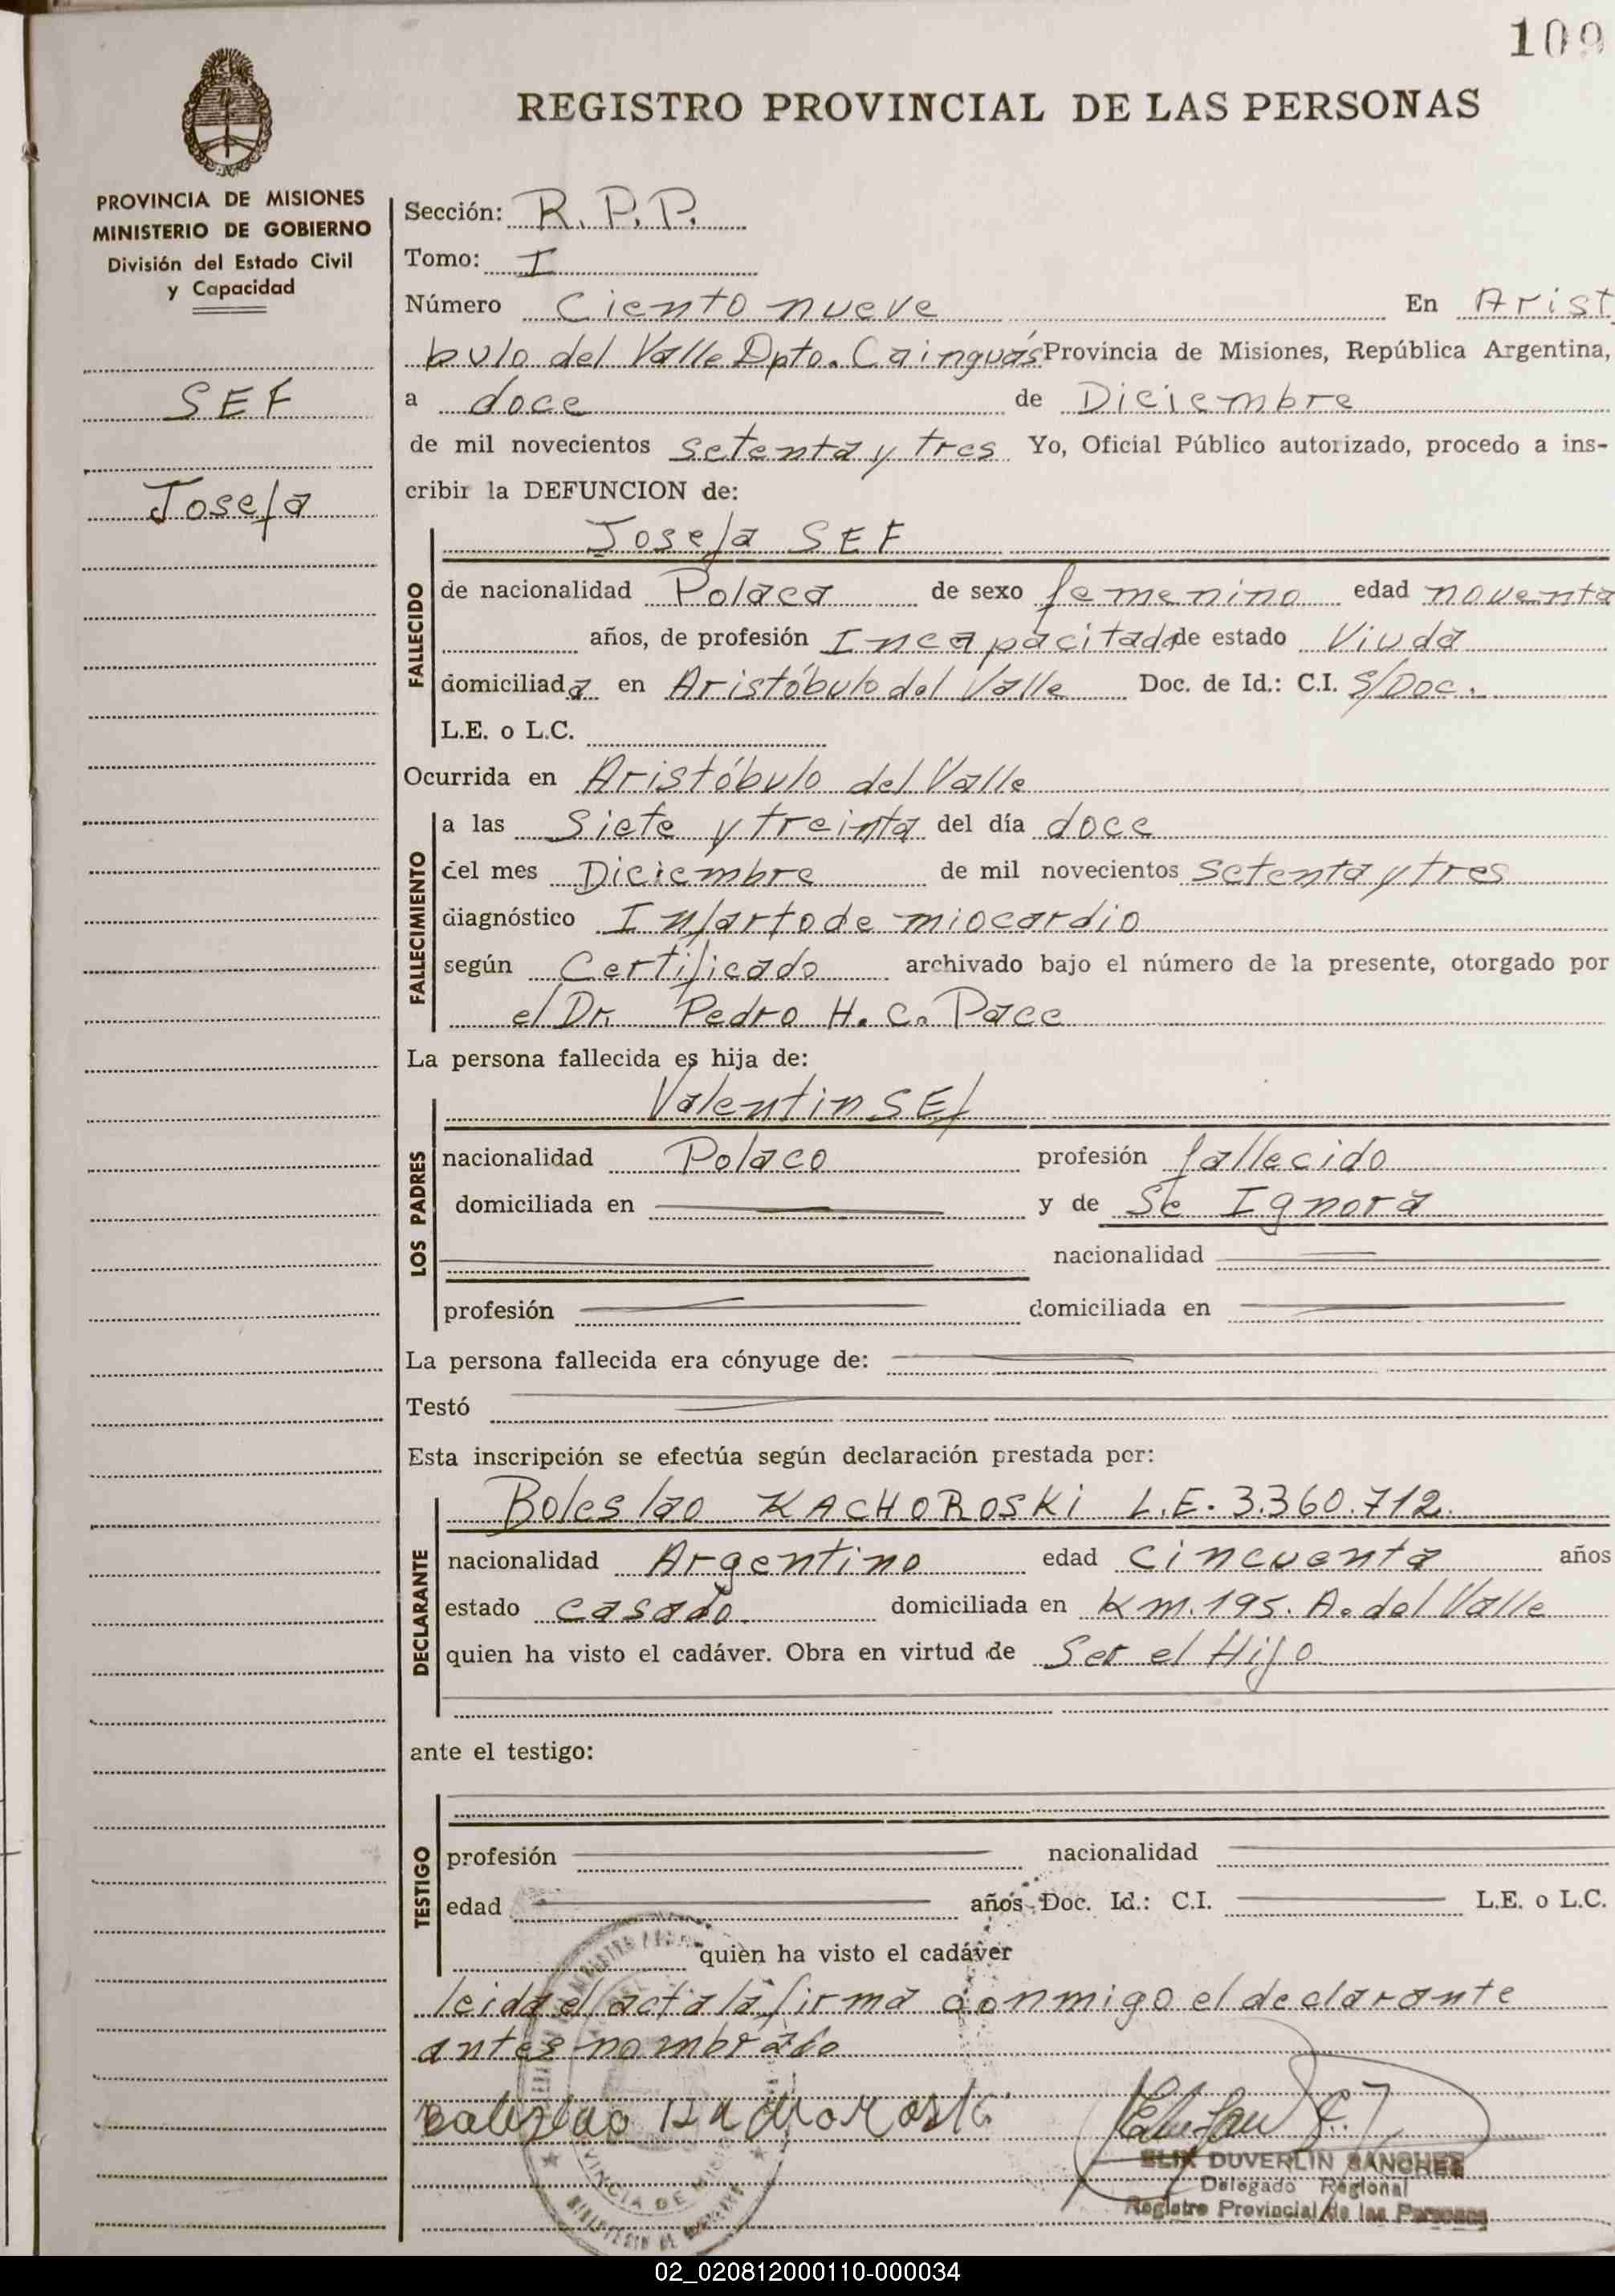 109
REGISTRO PROVINCIAL DE LAS PERSONAS
PROVINCIA DE MISIONES
MINISTERIO DE GOBIERNO
División del Estado Civil
y Capacidad
SEF
Josefa
Sección: R.P.P.
Tomo: I
Número Ciento nueve En Arist
bulo del Valle Dpto. Cainguás Provincia de Misiones, República Argentina,
a doce de Diciembre
de mil novecientos setenta y tres Yo, Oficial Público autorizado, procedo a ins-
cribir la DEFUNCION de:
Josefa SEF
FALLECIDO
de nacionalidad Polaca de sexo femenino edad noventa
años, de profesión Incapacitada de estado Viuda
domiciliada en Aristóbulo del Valle Doc. de Id.: C.I. S/Doc.
L.E. o L.C.
Ocurrida en Aristóbulo del Valle
FALLECIMIENTO
a las Siete y treinta del día doce
del mes Diciembre de mil novecientos Setenta y tres
diagnóstico Infarto de miocardio
según Certificado archivado bajo el número de la presente, otorgado por
el Dr. Pedro H. C. Pace
La persona fallecida es hija de:
Valentin SEf
LOS PADRES
nacionalidad Polaco profesión fallecido
domiciliada en y de Se Ignora
nacionalidad
profesión domiciliada en
La persona fallecida era cónyuge de:
Testó
Esta inscripción se efectúa según declaración prestada por:
Boleslao KACHOROSKi L.E. 3.360.712.
DECLARANTE
nacionalidad Argentino edad cincuenta años
estado casado. domiciliada en Km. 195. A. del Valle
quien ha visto el cadáver. Obra en virtud de Ser el Hijo
ante el testigo:
TESTIGO
profesión nacionalidad
edad años Doc. Id.: C.I. L.E. o L.C.
quien ha visto el cadáver
leida el acta la firma conmigo el declarante
antes nombrado
ELIX DUVERLIN SANCHEZ
Delegado Regional
Registro Provincial de las Personas
VINCIA DE MIS
02_020812000110-000034